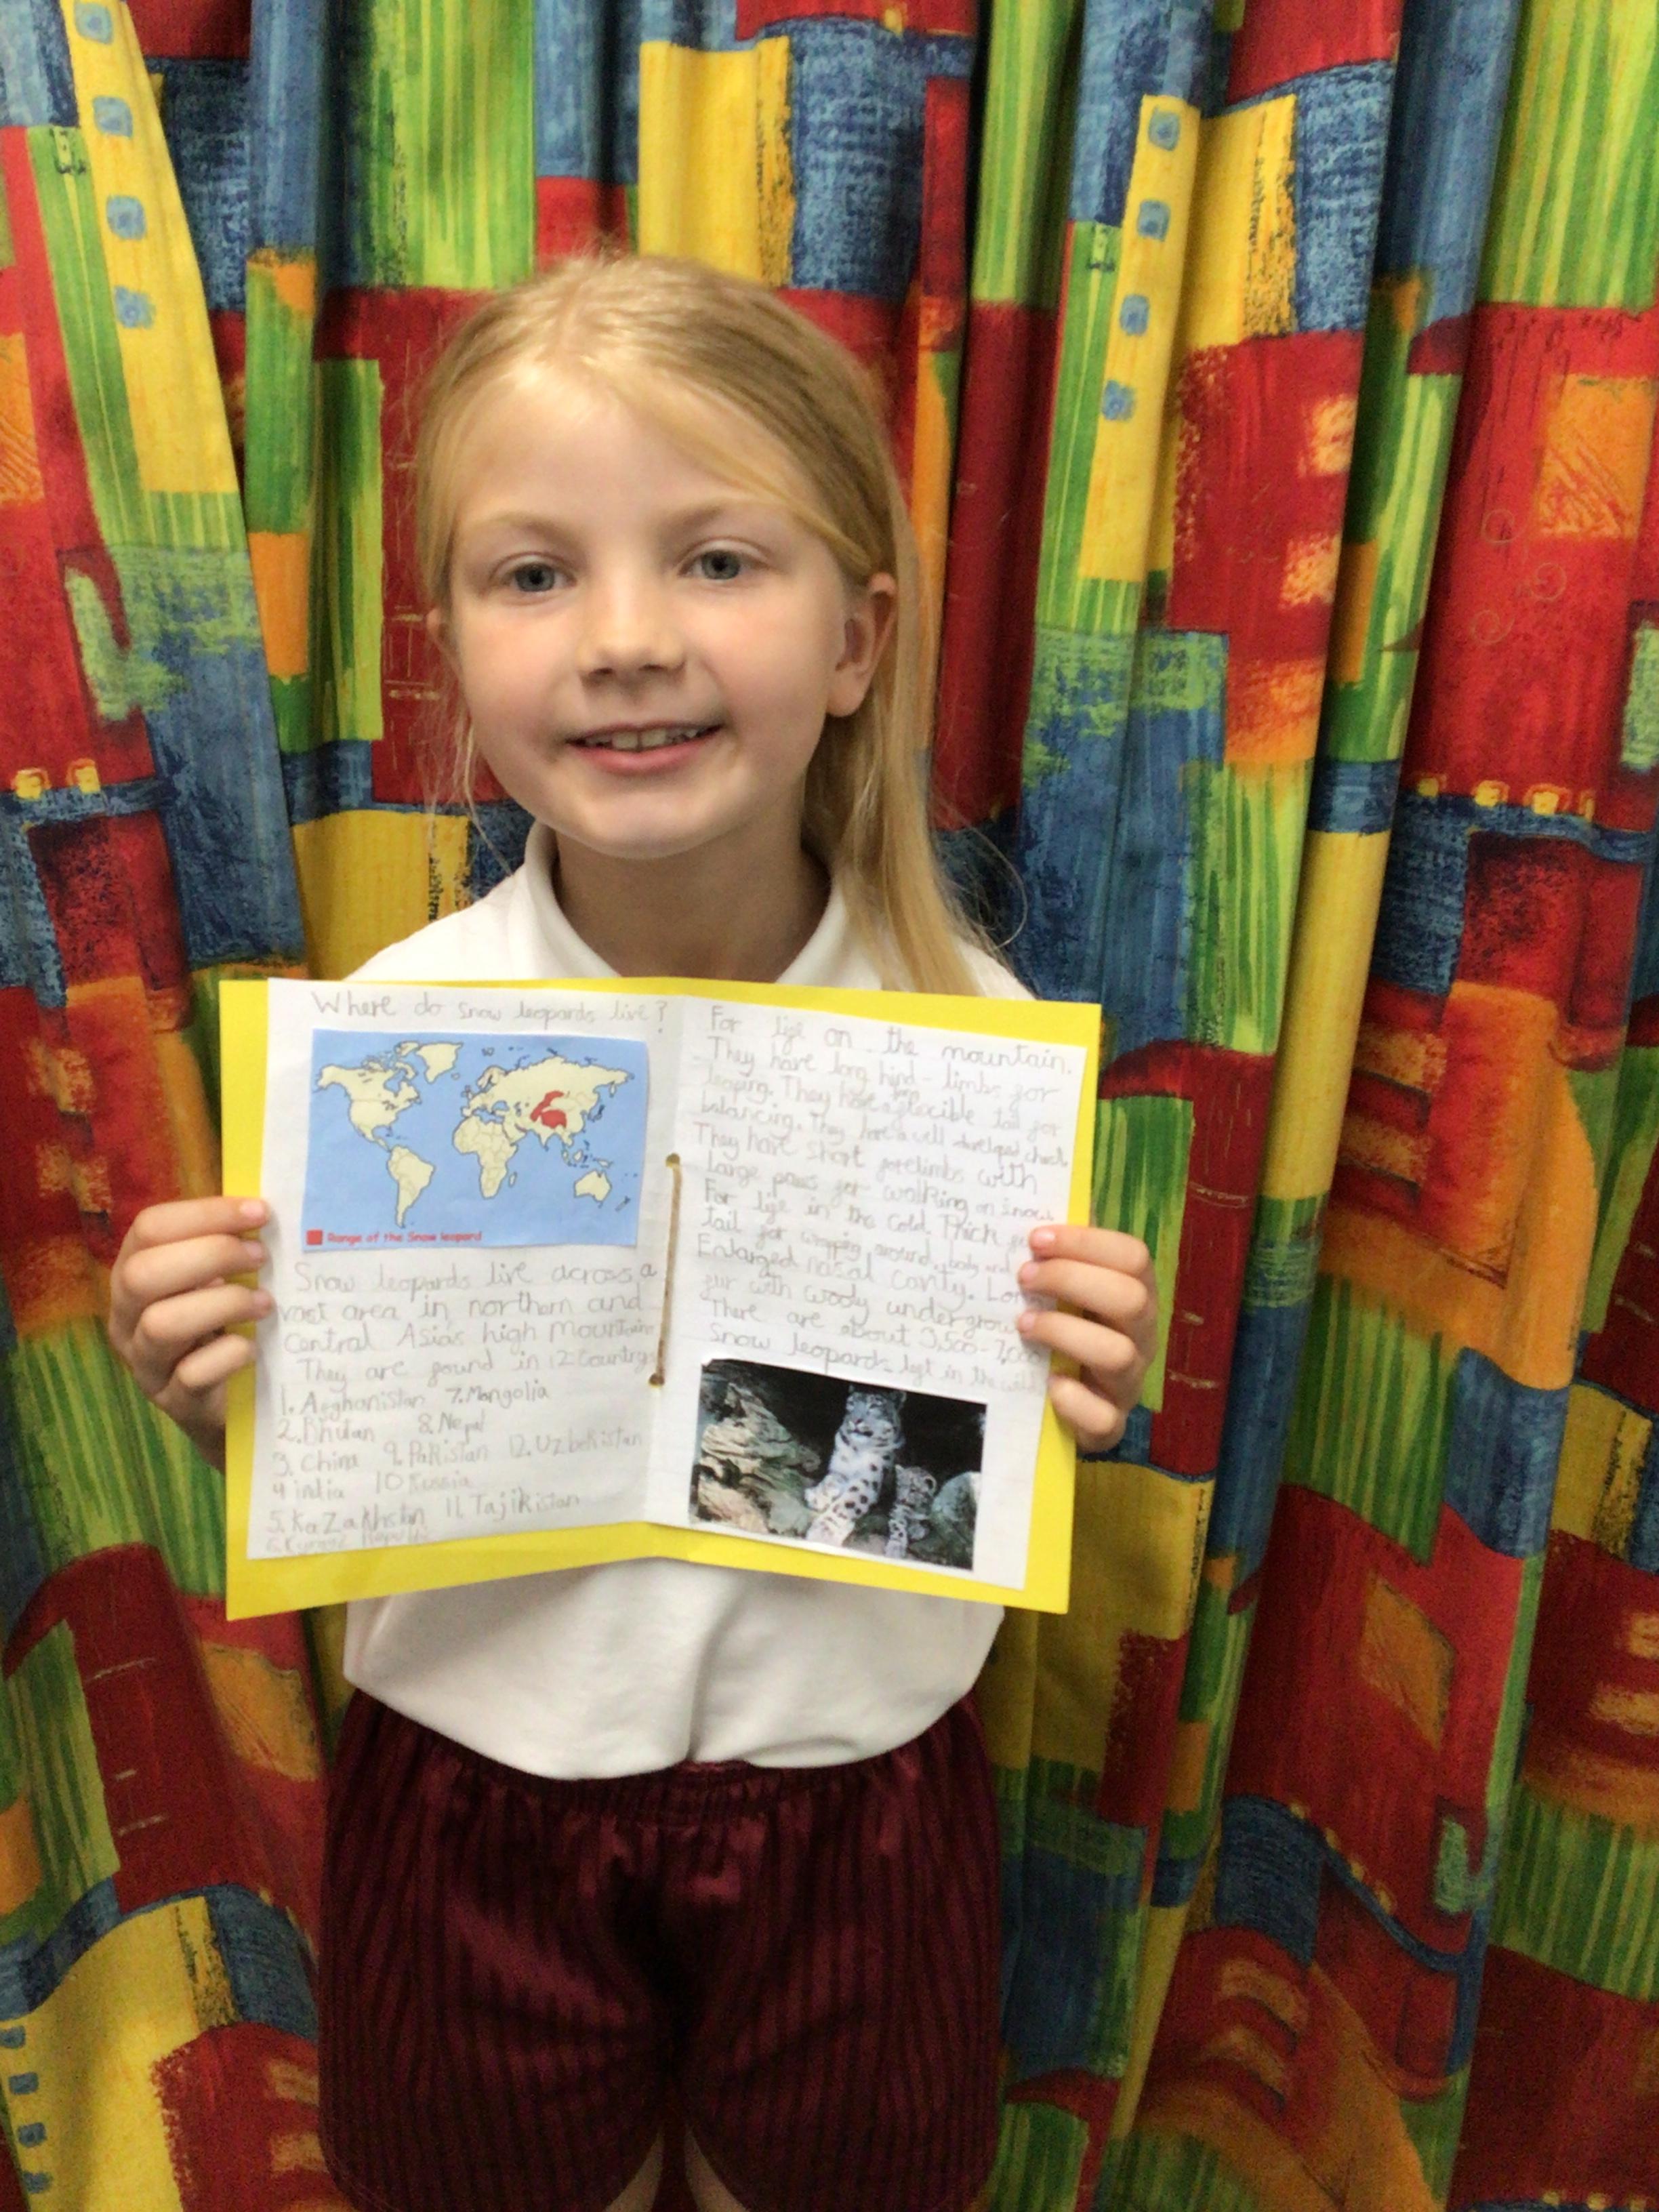 Where do snow leopards live?
Range of the Snow leopard
Snow leopards live across a
vast area in northern and
Central Asias high Mountains
They are found in 12 Countrys
1. Afghanistan 7. Mongolia
2. Bhutan 8. Nepal
3. China 9. Pakistan 12. Uzbekistan
4 india 10 Russia
5. KaZakhstan 11. Tajikistan
For life on the mountain.
They have long hind-limbs for
leaping. They have a flexible tail for
balancing. They have a well developed chest.
They have short forelimbs with
large paws for walking on snow.
For life in the cold. Thick
tail for wrapping around body and
Enlarged nasal cavity.
fur with wooly
There are about 3,500-7,000
Snow leopards left in the wild